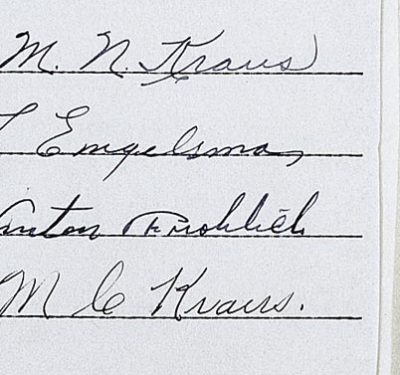 M. N. Kraus
Engelsma
Anton Frohlich
M C Kraus.